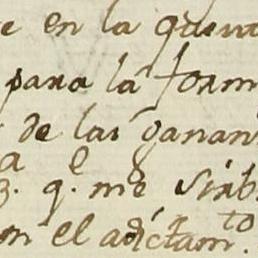 e en la quent
para la form
de las ganan
3.ª q.e me sirb
on el adictam.to